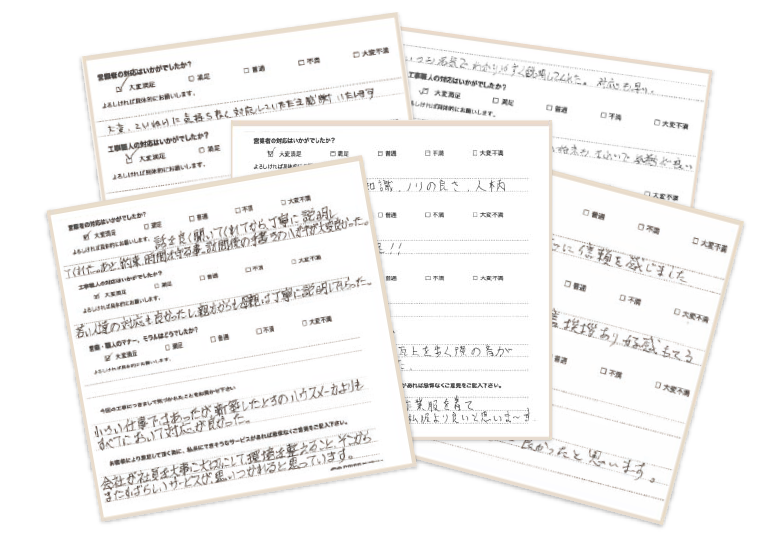 営業者の対応はいかがでしたか?
大変満足 満足 普通 不満 大変不満
よろしければ具体的にお願いします。
工事職人の対応はいかがでしたか?
大変満足 満足
よろしければ具体的にお願いします。
わかりやすく説明してくれた。対応も早い。
工事職人の対応はいかがでしたか?
大変満足 満足 普通 不満 大変不満
よろしければ具体的にお願いします。
大変不満
営業者の対応はいかがでしたか?
大変満足 満足 普通 不満 大変不満
よろしければ具体的にお願いします。
知識、ノリの良さ、人柄
普通 不満 大変不満
!!
普通 不満 大変不満
上を歩く際の音が
があれば是非なくご意見をご記入下さい。
作業服を着て
私服より良いと思いま〜す
普通 不満 大変不満
に信頼を感じました
普通 不満 大変不満
挨拶あり好感もてる
普通 不満 大変不満
良かったと思います。
営業者の対応はいかがでしたか?
大変満足 満足 普通 不満 大変不満
よろしければ具体的にお願いします。
話を良く聞いてくれてから丁寧に説明し
てくれた。あと約束、時間を守る事。訪問後の
工事職人の対応はいかがでしたか?
大変満足 満足 普通 不満 大変不満
よろしければ具体的にお願いします。
若い人達の対応も良かったし、親方からも母親は丁寧に説明してもらった。
営業・職人のマナー、モラルはどうでしたか?
大変満足 満足 普通 不満 大変不満
よろしければ具体的にお願いします。
今回の工事につきまして気づかれたことをお聞かせ下さい
小さい仕事ではあったが新築したときのハウスメーカよりも
すべてにおいて対応が良かった。
お客様により満足して頂く為に、私共にできそうなサービスがあれば是非なくご意見をご記入下さい。
会社が社員を大事に大切にして環境を整えること、そこから
またすばらしいサービスが思いつかれると思っています。